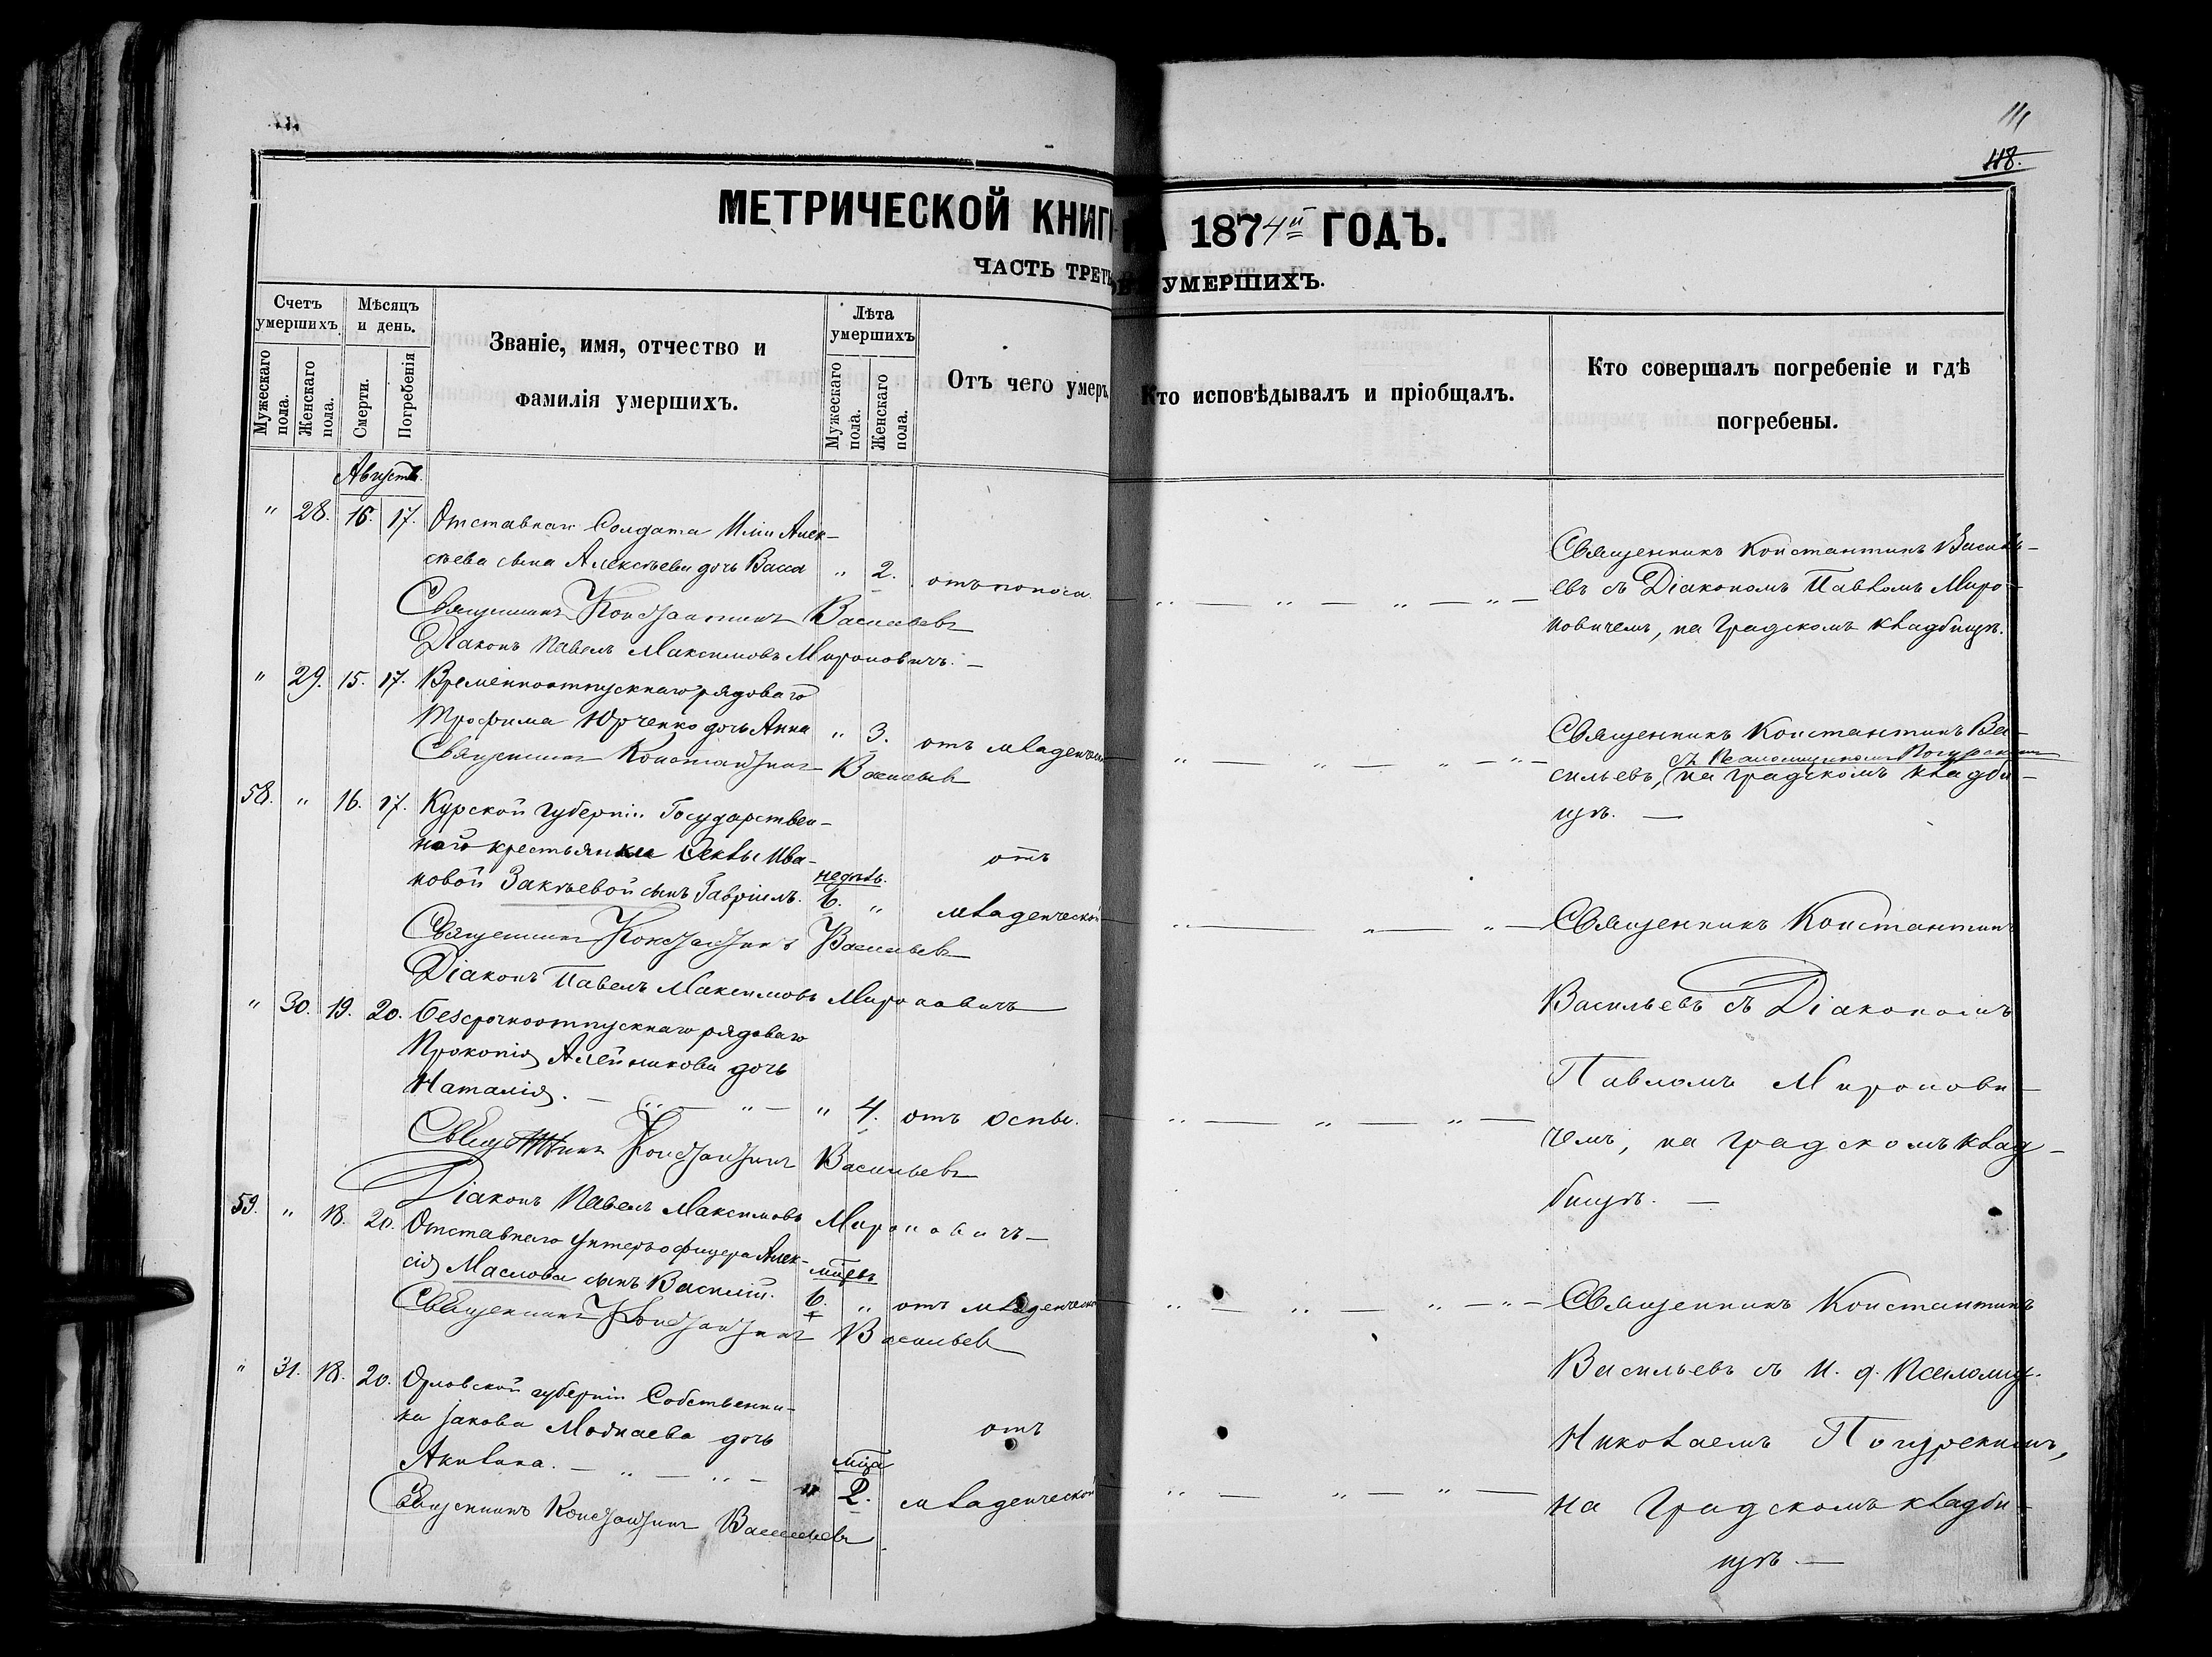 111
118.
МЕТРИЧЕСКОЙ КНИГ
НА 1874й ГОДЪ.
ЧАСТЬ ТРЕТЬ
УМЕРШИХЪ.
Счетъ умершихъ.
Мѣсяцъ и день.
Званіе, имя, отчество и фамилія умершихъ.
Лѣта умершихъ
Отъ чего умеръ
Кто исповѣдывалъ и пріобщалъ.
Кто совершалъ погребеніе и гдѣ погребены.
Мужескаго пола.
Женскаго пола.
Смерти.
Погребенія
Мужескаго пола.
Женскаго пола.
Августъ.
" 28. 16. 17. Отставнаго Солдата Иліи Алек-
сѣева сына Алексѣева дочь Васса " 2. отъ поноса.
Священникъ Константинъ Васильевъ
Діаконъ Павелъ Максимовъ Мироновичъ. —
Священникъ Константинъ Василь-
евъ съ Діакономъ Павломъ Миро-
новичемъ, на градскомъ кладбищѣ.
" 29. 15. 17. Временноотпускнаго рядоваго
Трофима Юрченко дочь Анна " 3. отъ младенческ
Священникъ Константинъ Васильевъ
Священникъ Константинъ Ва-
съ Псаломщикомъ
сильевъ, на градскомъ кладби-
щѣ. —
58. " 16. 17. Курской губерніи Государствен-
ного крестьянки Ѳеклы Ива-
новой Закѣевой сынъ Гавріилъ. недѣль. 6. " отъ младенческой
Священникъ Константинъ Васильевъ
Діаконъ Павелъ Максимовъ Мироновичъ
Священникъ Константинъ
Васильевъ съ Діакономъ
Павломъ Миронови-
чемъ, на градскомъ клад-
бищѣ. —
" 30. 19. 20. Безсрочноотпускнаго рядоваго
Прокопія Алейникова дочь
Наталія. — " — " — " 4. отъ оспы.
Священникъ Константинъ Васильевъ
Діаконъ Павелъ Максимовъ Мироновичъ —
59. " 18. 20. Отставнаго Унтеръ офицера Алек-
сія Маслова сынъ Василій. мцевъ 6. " отъ младенческ
Священникъ Константинъ Васильевъ
Священникъ Константинъ
Васильевъ съ И. д. Псаломщ.
Николаемъ
на градскомъ кладби-
щѣ. —
" 31. 18. 20. Орловской губерніи Собственни-
ка Іакова дочь
Акилина. — " — " — мца " 2. отъ младенческой
Священникъ Константинъ Васильевъ